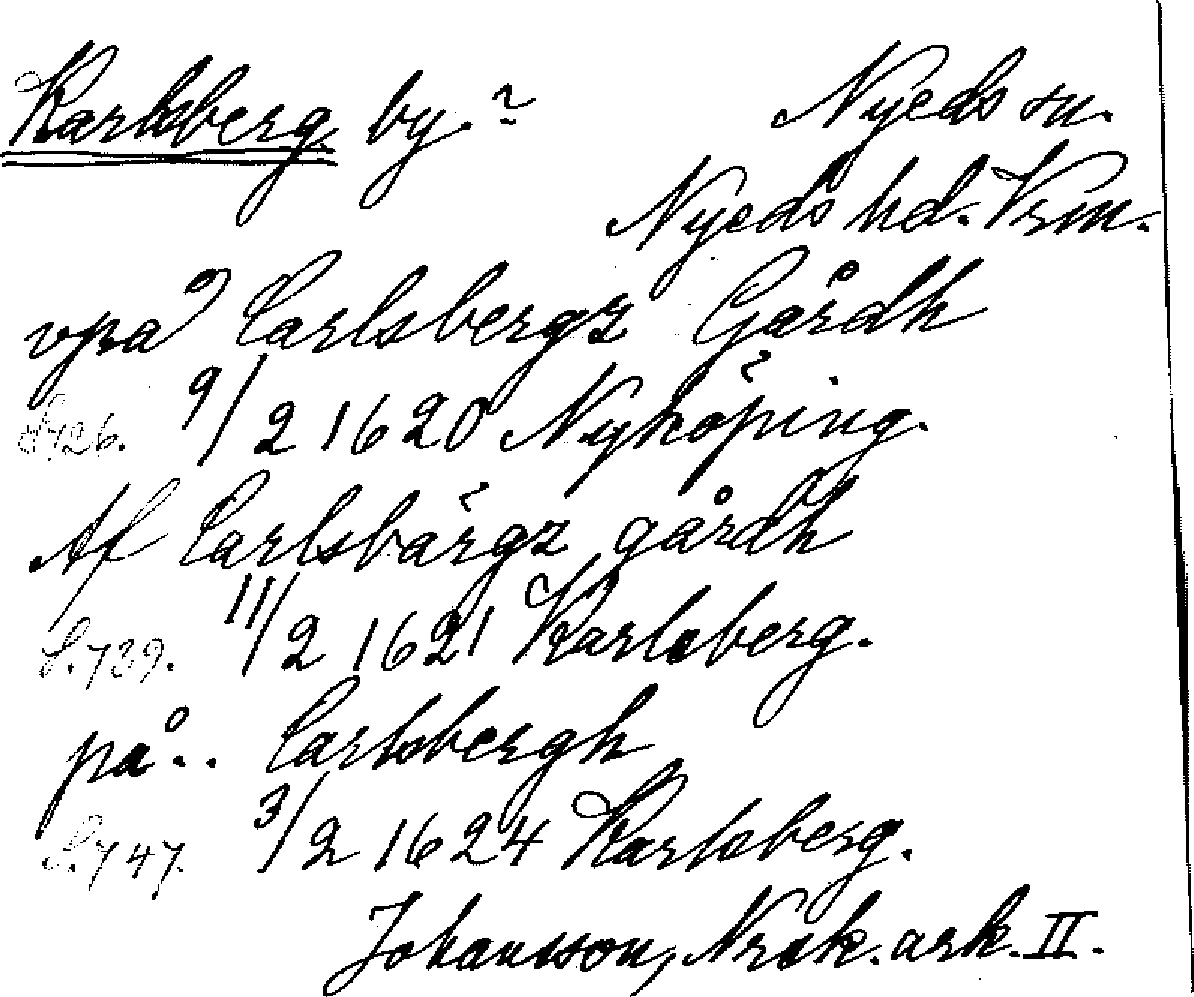 Karlsberg by? Nyeds sn.
Nyeds hd. Vrm.
vpå Carlsbergz Gårdh
S. 726. 9/2 1620 Nyköping.
Af Carlsbärgz gårdh
S. 739. 11/2 1621 Karlsberg.
på.. Carlsbergh
S. 747. 3/2 1624 Karlsberg.
Johansson, Nrsk. ark. II.